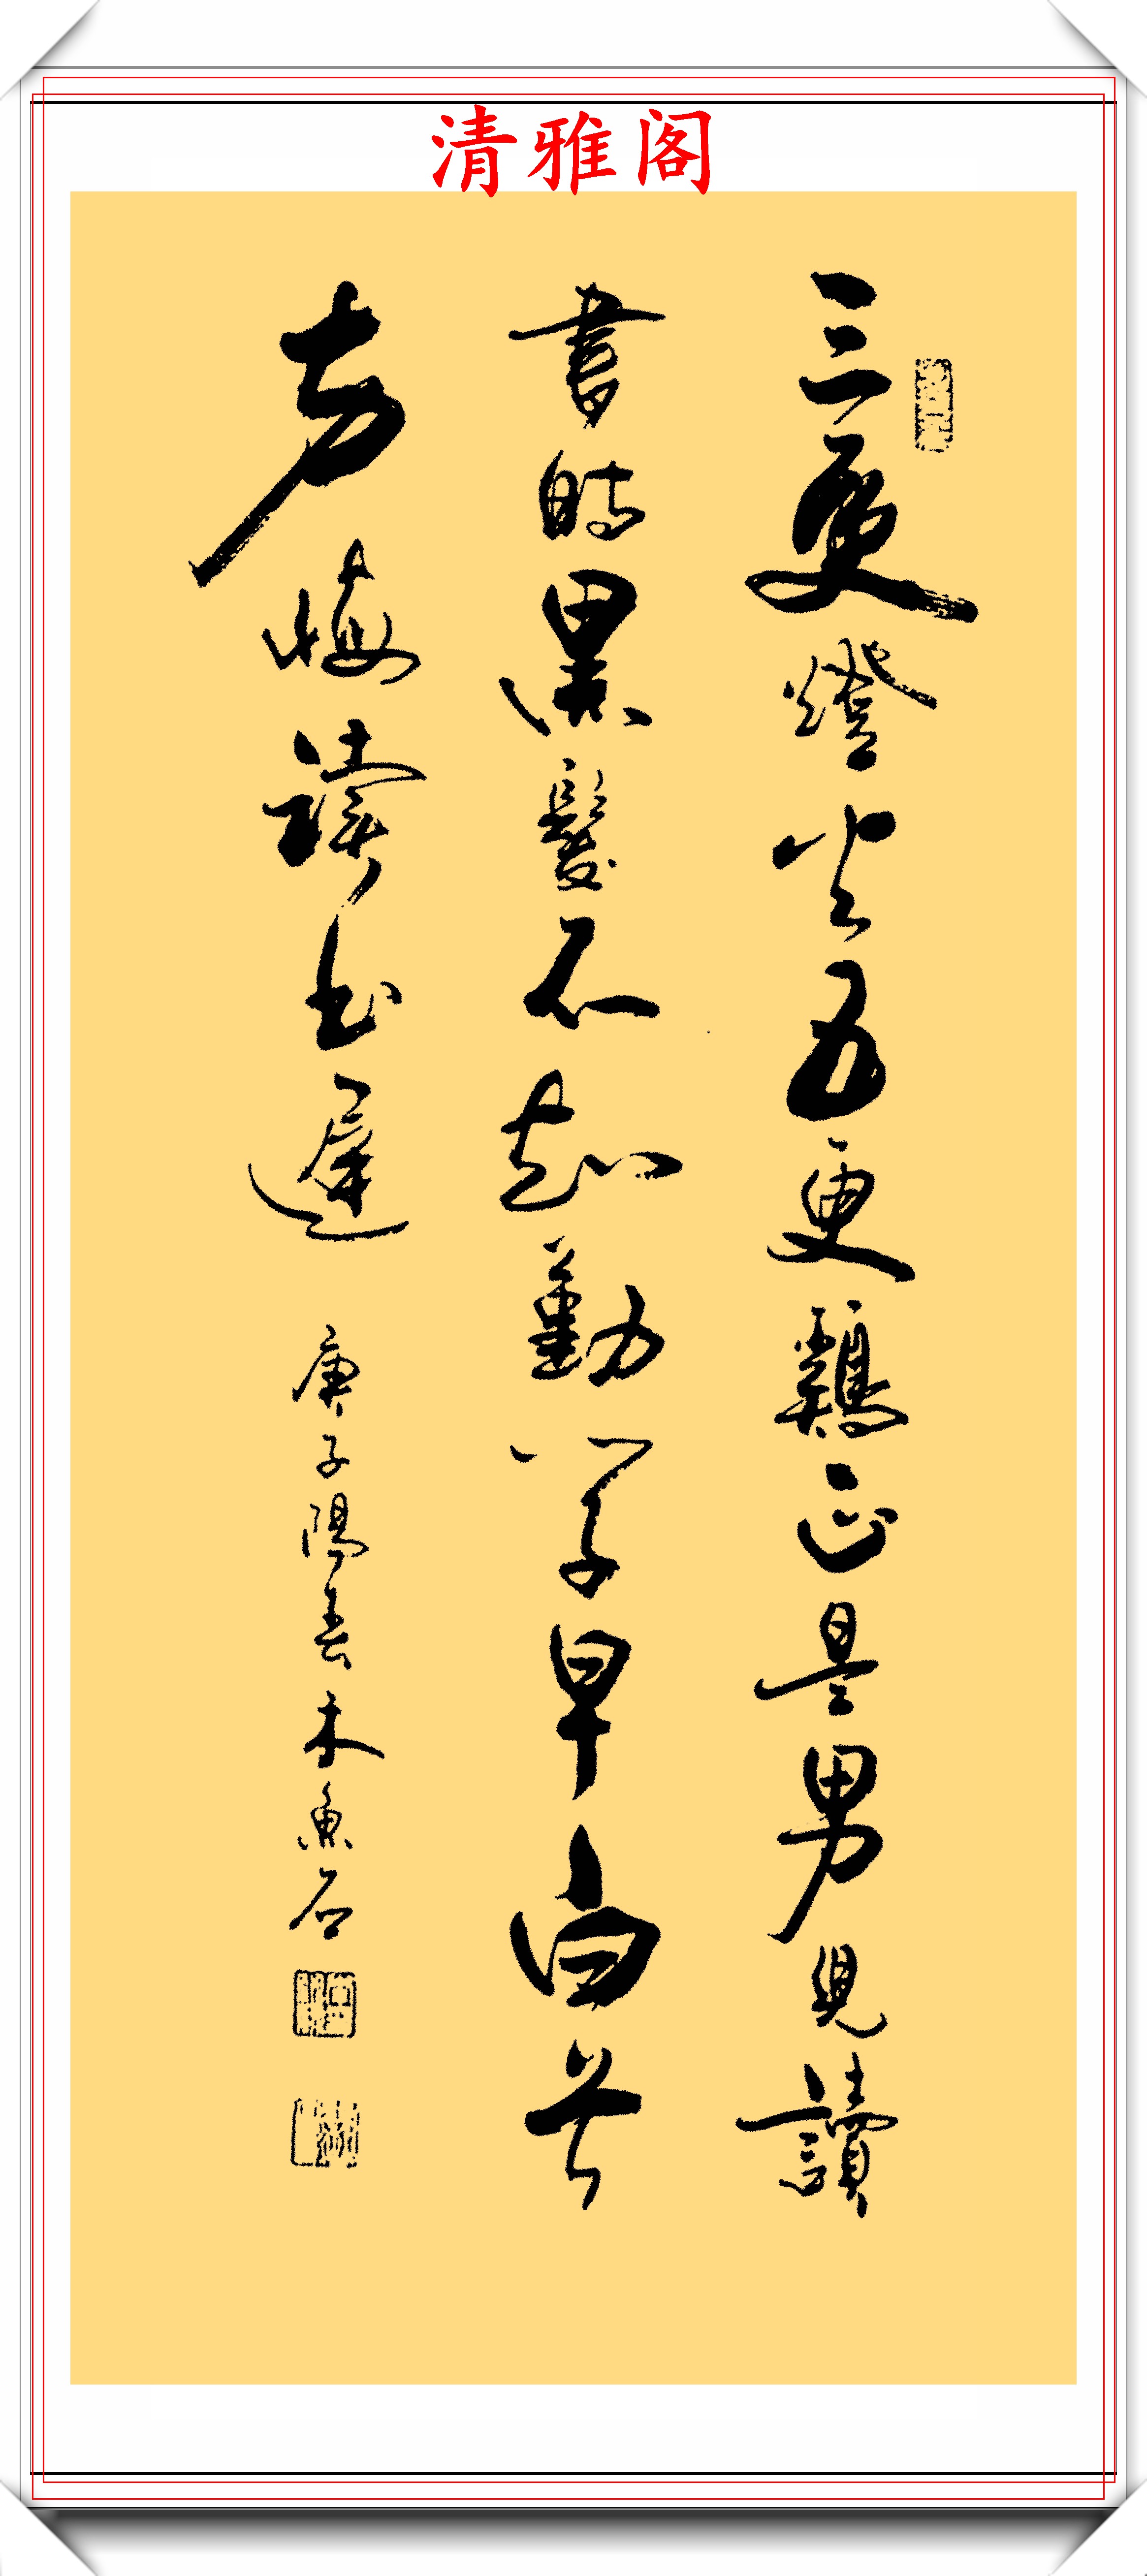 清雅阁
三更燈火五更鷄正是男兒讀
書時黑髮不知勤学早白首
方悔讀书遲
庚子陽春木魚石